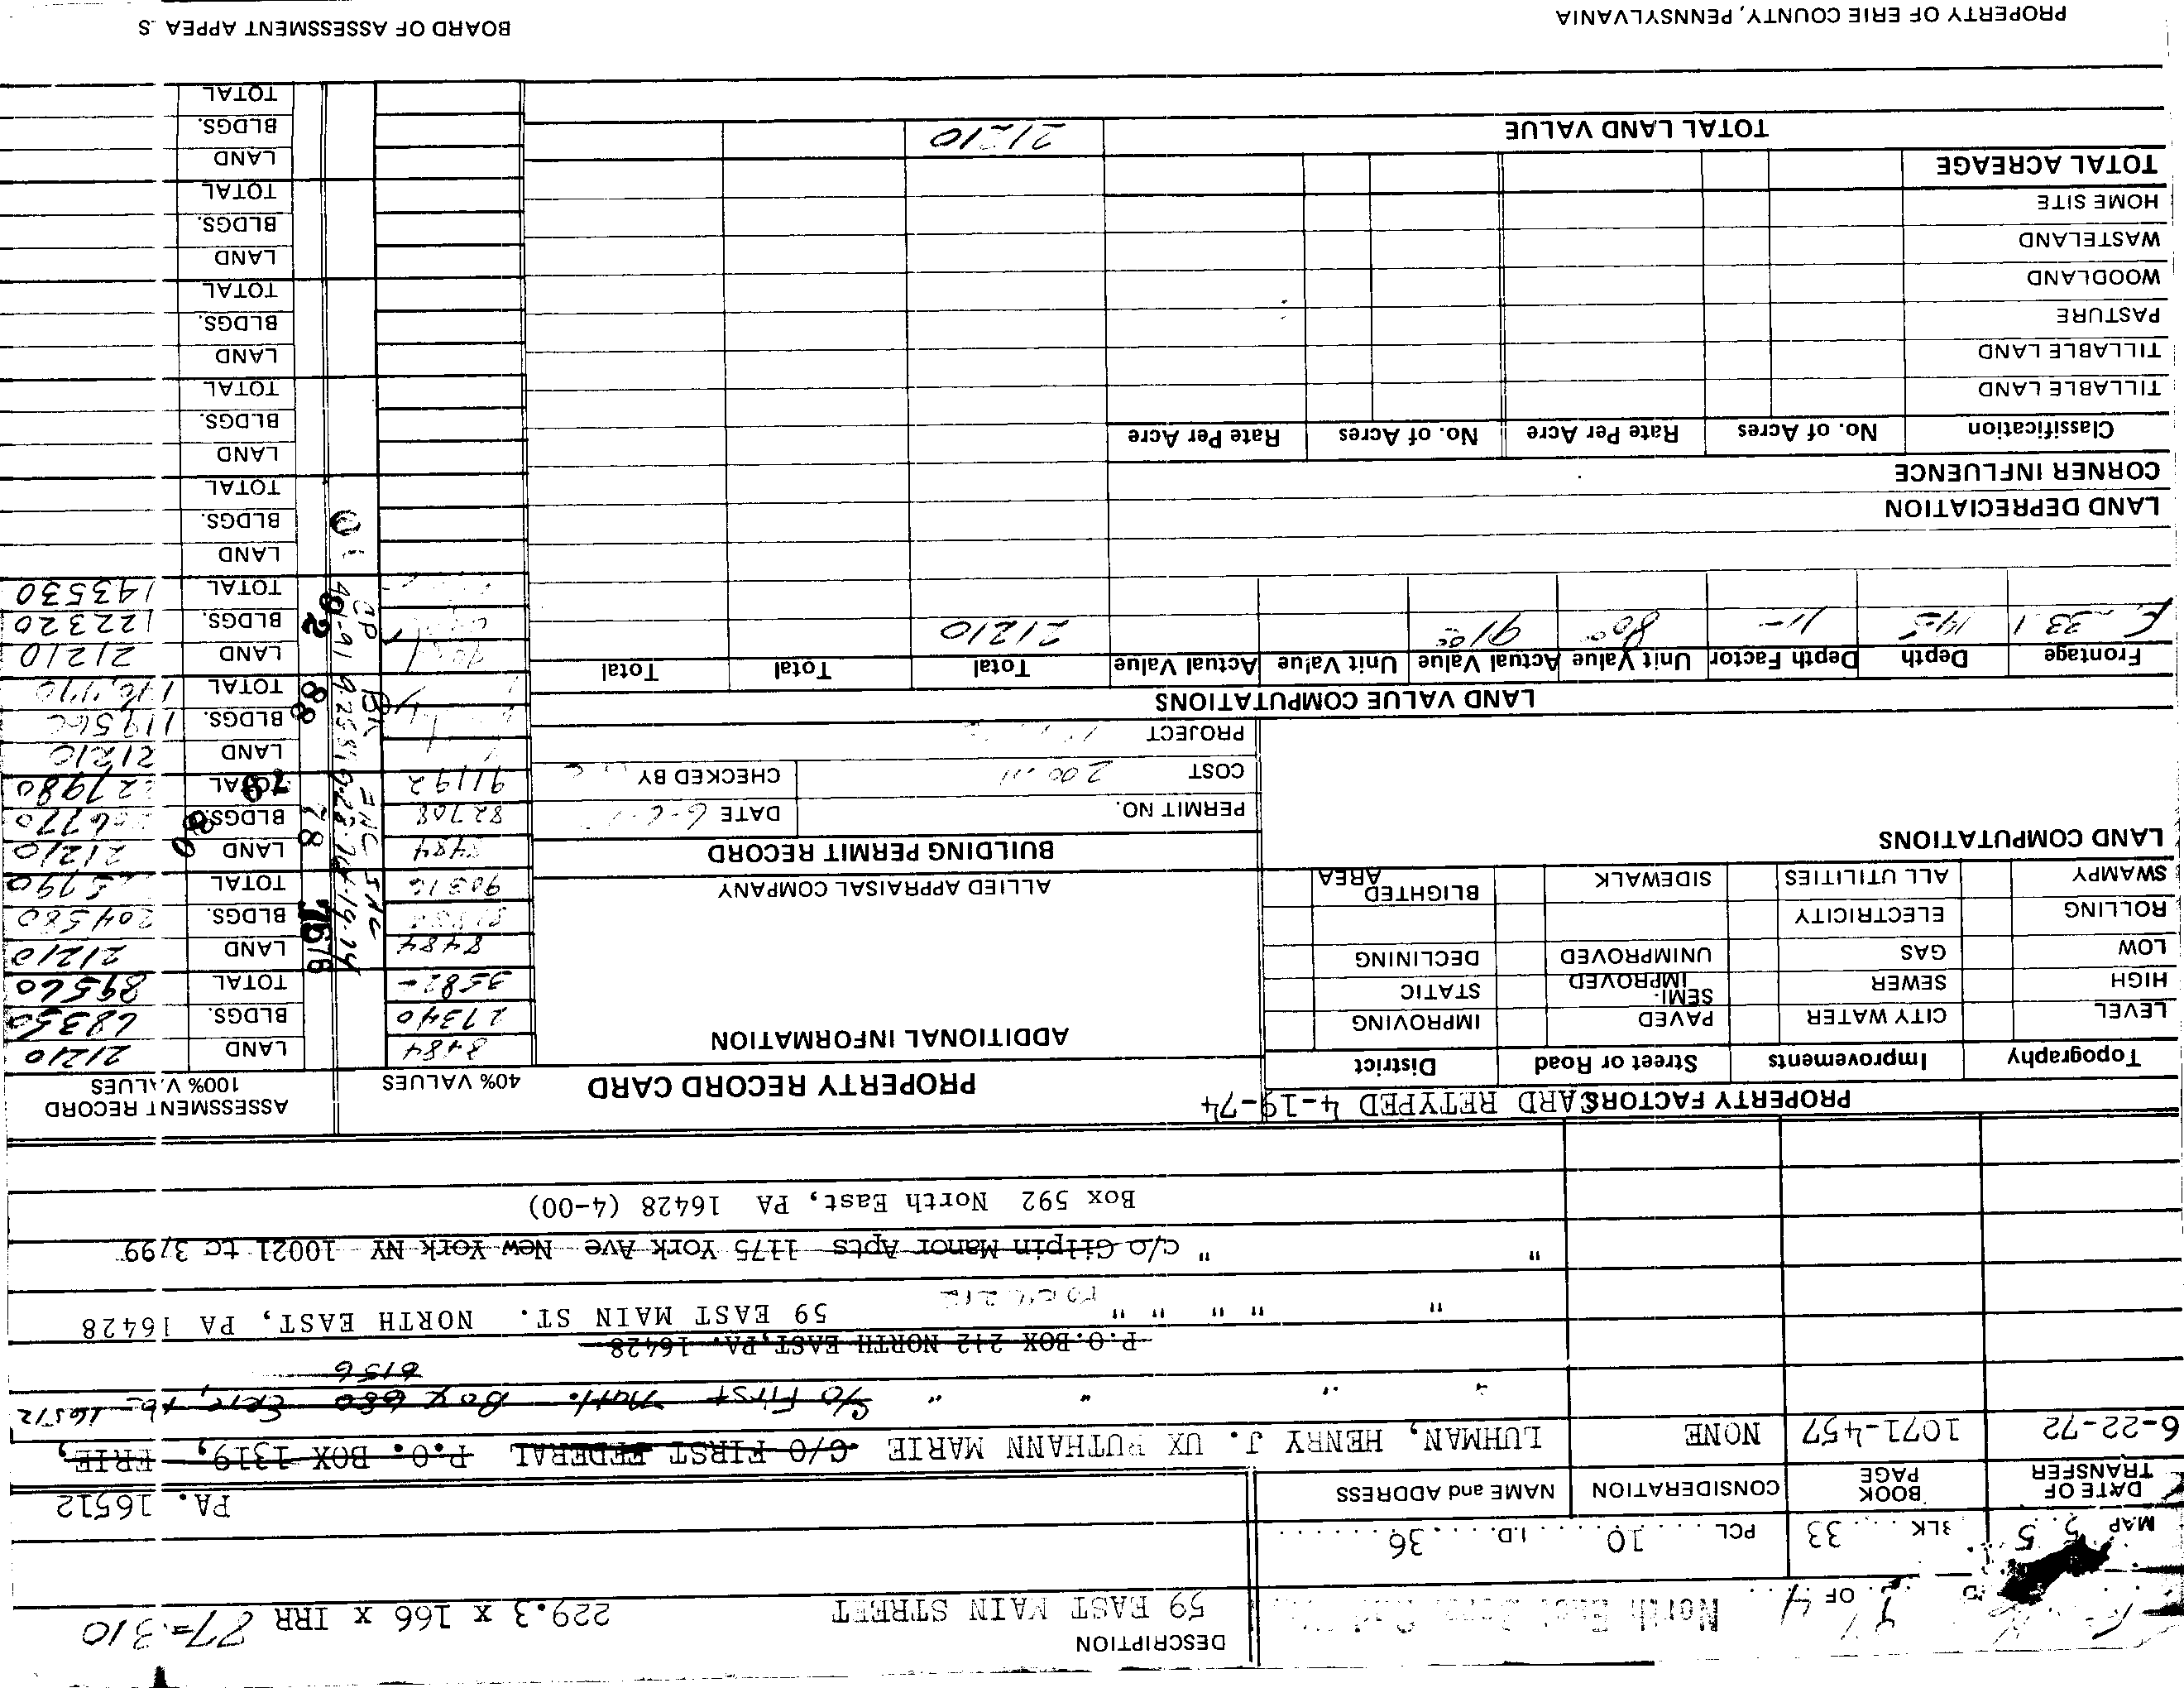 DESCRIPTION
OF 4 North East 59 EAST MAIN STREET 229.3 x 166 x IRR 87=310
MAP 5 5 BLK 33 PCL 10 I.D. 36
DATE OF TRANSFER BOOK PAGE CONSIDERATION NAME and ADDRESS PA. 16512
6-22-72 1071-457 NONE LUHMAN, HENRY J. UX RUTHANN MARIE C/O FIRST FEDERAL P.O. BOX 1319, ERIE,
" " " " C/O First Natl. Box 680 Erie, Pa 16512
6156
P.O. BOX 212 NORTH EAST, PA. 16428
" " " " " 59 EAST MAIN ST. NORTH EAST, PA 16428
" " c/o Gilpin Manor Apts 1175 York Ave New York NY 10021 tc 3/99
Box 592 North East, PA 16428 (4-00)
PROPERTY FACTORS CARD RETYPED 4-19-74
PROPERTY RECORD CARD
40% VALUES
ASSESSMENT RECORD
100% VALUES
Topography Improvements Street or Road District
LEVEL CITY WATER PAVED IMPROVING
HIGH SEWER SEMI-IMPROVED STATIC
LOW GAS UNIMPROVED DECLINING
ROLLING ELECTRICITY
SWAMPY ALL UTILITIES SIDEWALK BLIGHTED AREA
LAND COMPUTATIONS
ADDITIONAL INFORMATION
ALLIED APPRAISAL COMPANY
BUILDING PERMIT RECORD
PERMIT NO. DATE 6-6-
COST CHECKED BY
PROJECT
8484 LAND 21210
27340 BLDGS. 68350
3582- TOTAL 89560
8484 LAND 21210
BLDGS. 204580
90316 TOTAL
8484 LAND 21210
82708 BLDGS.
91192 TOTAL
LAND 21210
BLDGS.
TOTAL
LAND 21210
BLDGS. 122320
TOTAL 143530
LAND
BLDGS.
TOTAL
LAND
BLDGS.
TOTAL
LAND
BLDGS.
TOTAL
LAND
BLDGS.
TOTAL
LAND
BLDGS.
TOTAL
76
78
88
82
LAND VALUE COMPUTATIONS
Frontage Depth Depth Factor Unit Value Actual Value Unit Value Actual Value Total Total Total
145 80 21210
LAND DEPRECIATION
CORNER INFLUENCE
Classification No. of Acres Rate Per Acre No. of Acres Rate Per Acre
TILLABLE LAND
TILLABLE LAND
PASTURE
WOODLAND
WASTELAND
HOME SITE
TOTAL ACREAGE
TOTAL LAND VALUE 21210
PROPERTY OF ERIE COUNTY, PENNSYLVANIA
BOARD OF ASSESSMENT APPEA S